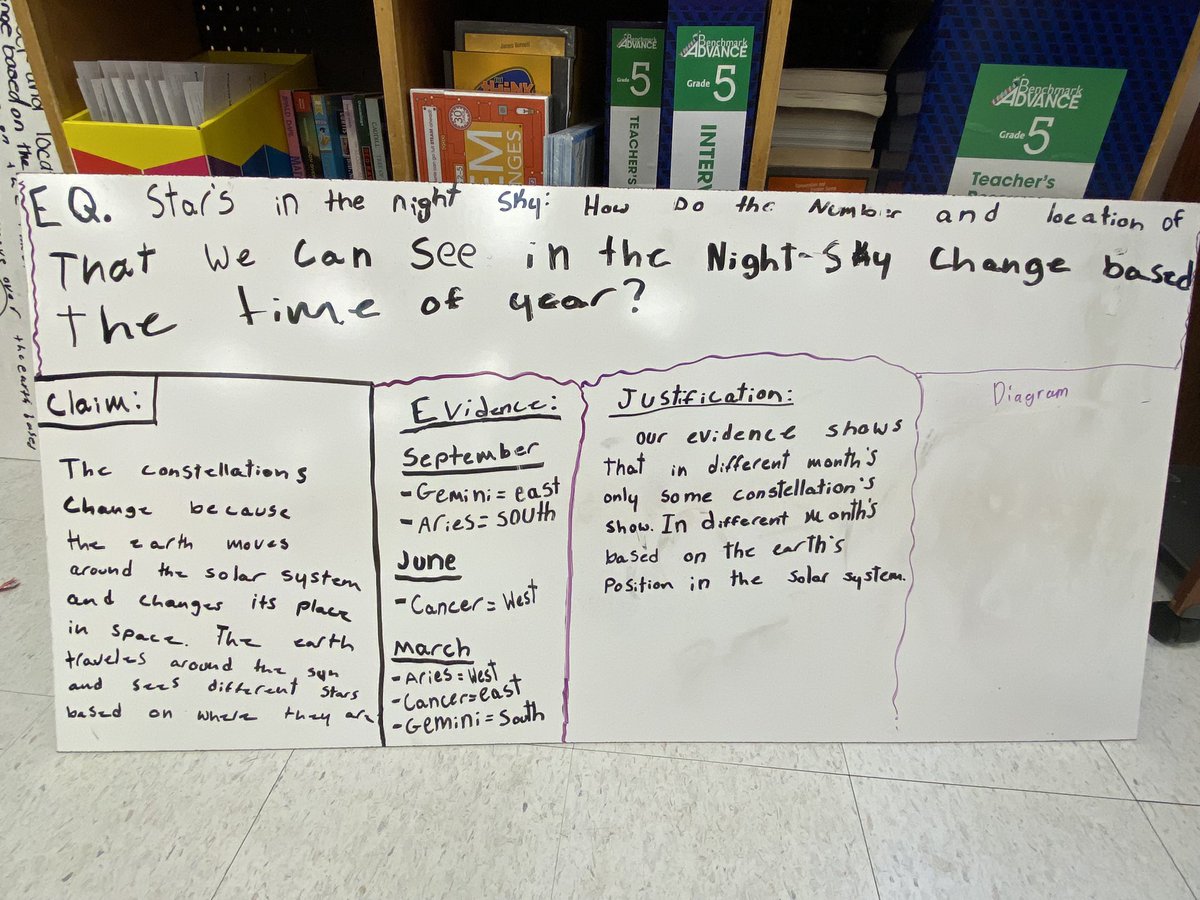 Benchmark
ADVANCE
Grade 5
TEACHER'S
Benchmark
ADVANCE
Grade 5
INTERV
Benchmark
ADVANCE
Grade 5
Teacher's
EQ. Star's in the night sky: How Do the Number and location of
That we can see in the Night-sky change based
the time of year?
Claim:
The constellations
change because
the earth moves
around the solar system
and changes its place
in space. The earth
traveles around the sun
and sees different stars
based on where they are
Evidence:
September
- Gemini = east
- Aries = South
June
- Cancer = West
March
- Aries = West
- Cancer = east
- Gemini = South
Justification:
our evidence shows
that in different month's
only some constellation's
show. In different month's
based on the earth's
Position in the solar system.
Diagram